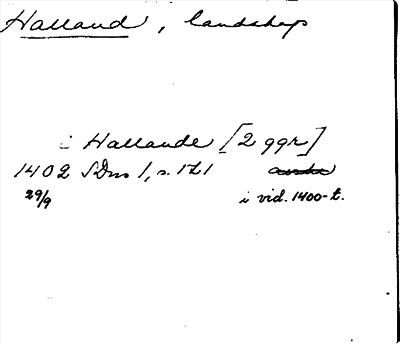 Halland, landskap
i Hallande [2 ggr]
1402 SDns 1, s. 171
29/9 i vid. 1400-t.